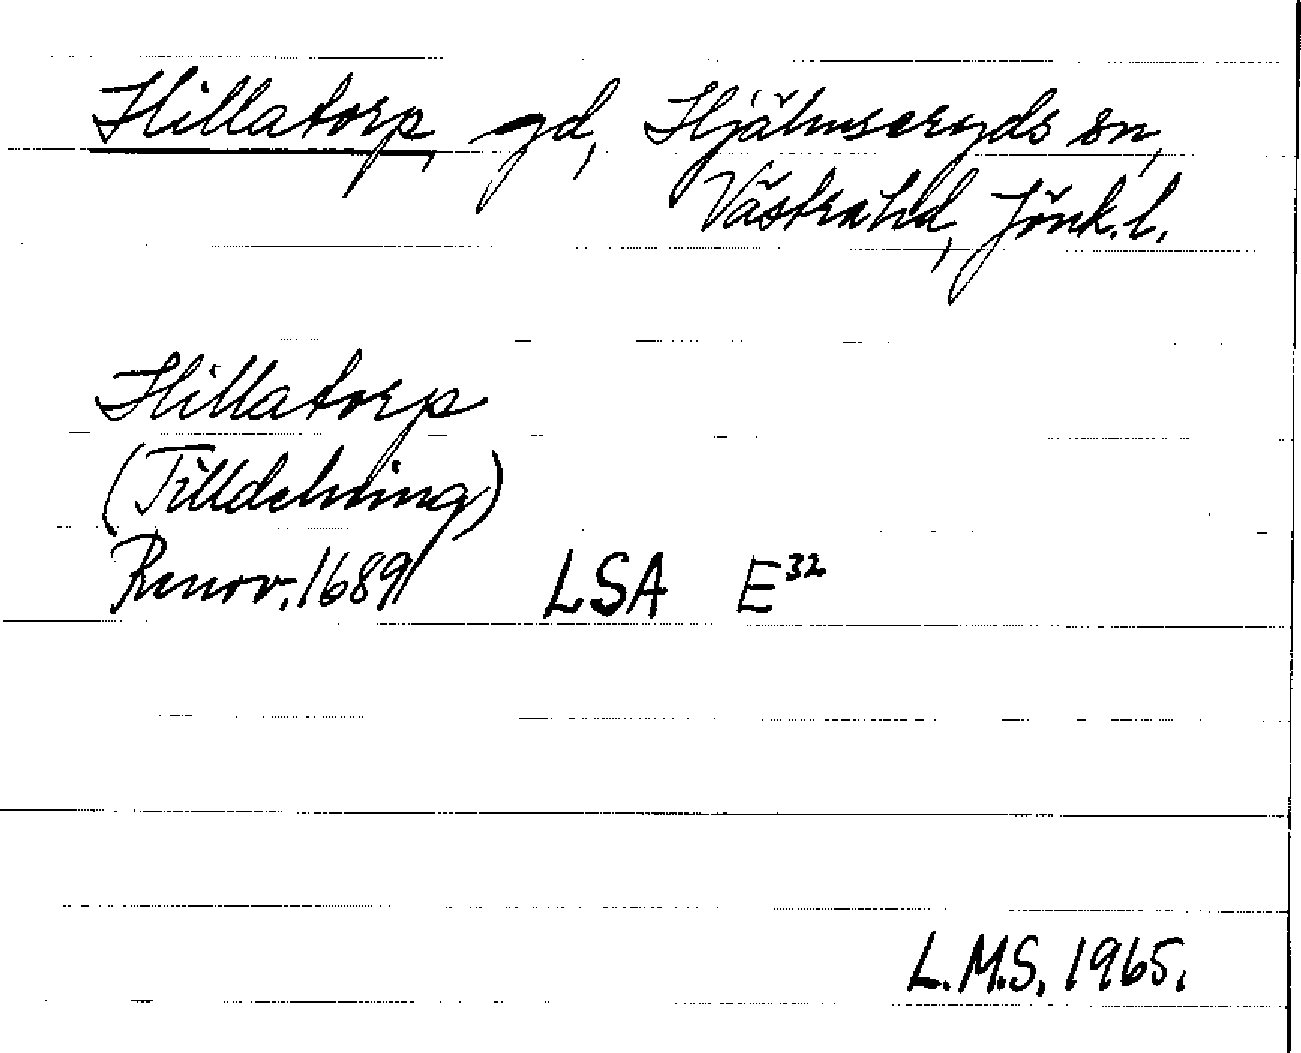 Hillatorp, gd, Hjälmseryds sn,
Västra hd, Jönk. l.
Hillatorp
(Tilldelning)
Renov. 1689 LSA E32
L.M.S. 1965.